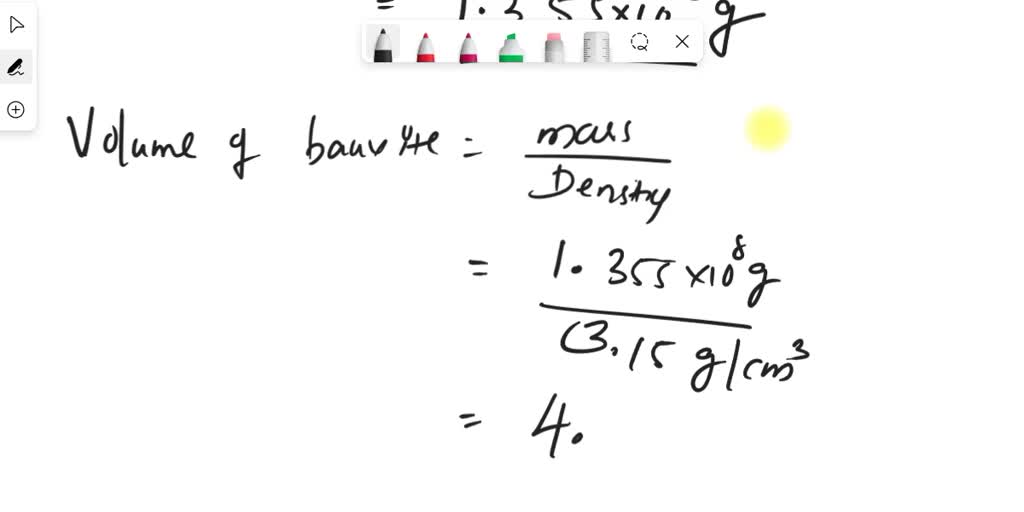 = 1.355×10 g
Volume of bauxite = mass
Density
= 1.355 ×10⁸ g
(3.15 g/cm³
= 4.